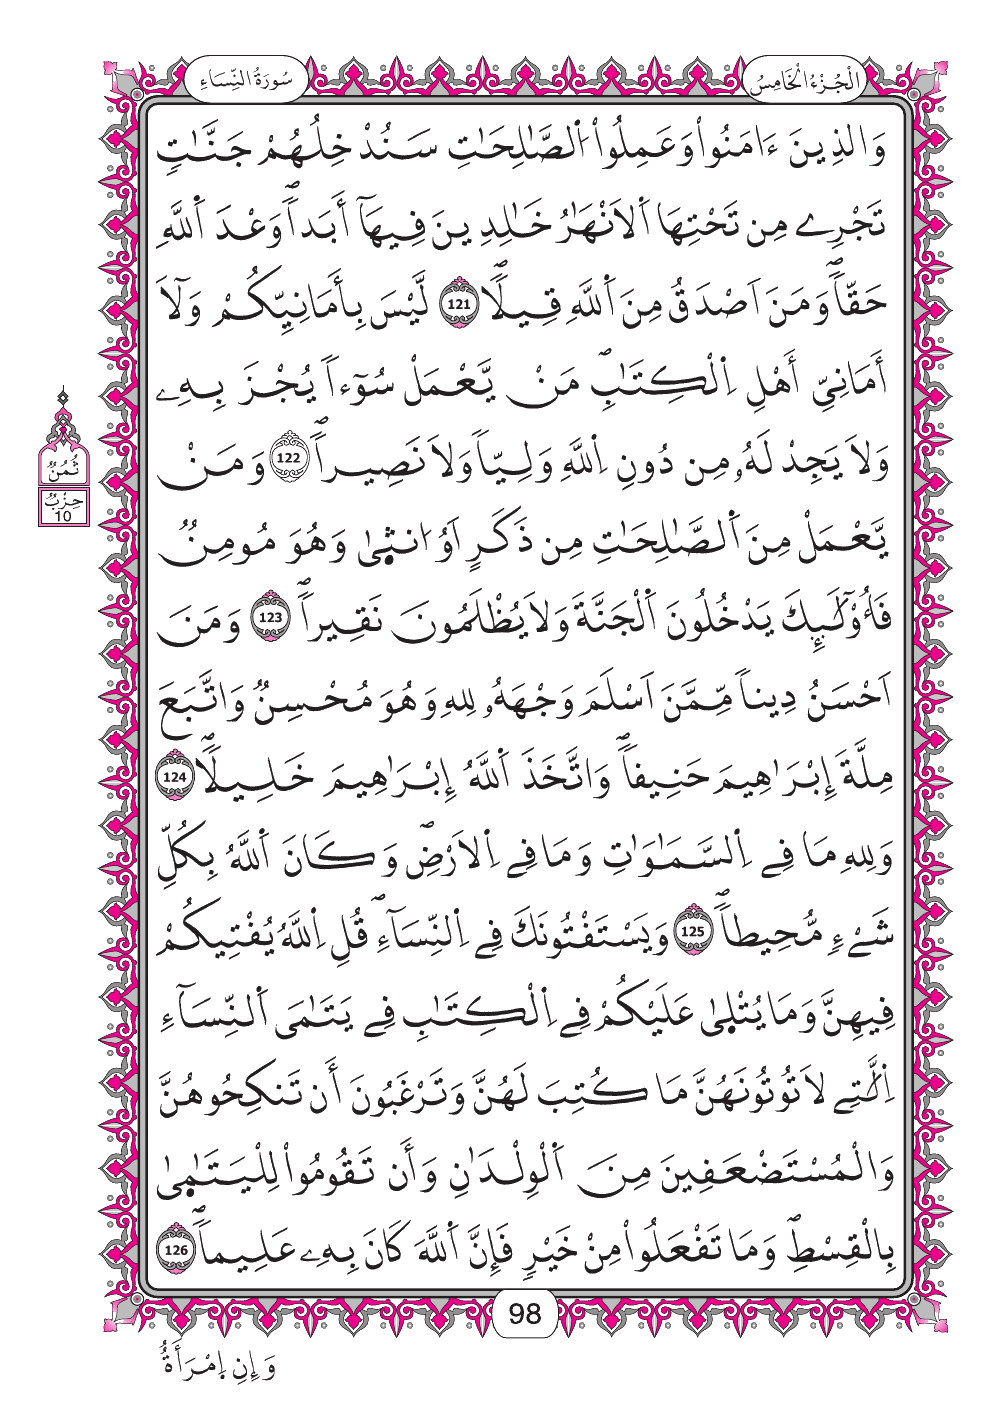 الْجُزْءُ الْخَامِسُ
سُورَةُ النِّسَاءِ
وَالذِينَ ءَامَنُواْ وَعَمِلُواْ اُ۬لصَّٰلِحَٰتِ سَنُدْخِلُهُمْ جَنَّٰتٖ
تَجْرِے مِن تَحْتِهَا اَ۬لَانْهَٰرُ خَٰلِدِينَ فِيهَآ أَبَداٗۖ وَعْدَ اَ۬للَّهِ
حَقّاٗۖ وَمَنَ اَصْدَقُ مِنَ اَ۬للَّهِ قِيلاٗۖ 121 لَّيْسَ بِأَمَانِيِّكُمْ وَلَآ
أَمَانِيِّ أَهْلِ اِ۬لْكِتَٰبِۖ مَنْ يَّعْمَلْ سُوٓءاٗ يُجْزَ بِهِۦ
وَلَا يَجِدْ لَهُۥ مِن دُونِ اِ۬للَّهِ وَلِيّاٗ وَلَا نَصِيراٗۖ 122 وَمَنْ
يَّعْمَلْ مِنَ اَ۬لصَّٰلِحَٰتِ مِن ذَكَرٍ اَوُ ا۟نث۪يٰ وَهُوَ مُومِنٞ
فَأُوْلَٰٓئِكَ يَدْخُلُونَ اَ۬لْجَنَّةَ وَلَا يُظْلَمُونَ نَقِيراٗۖ 123 وَمَنَ
اَحْسَنُ دِيناٗ مِّمَّنَ اَسْلَمَ وَجْهَهُۥ لِلهِ وَهُوَ مُحْسِنٞ وَاتَّبَعَ
مِلَّةَ إِبْرَٰهِيمَ حَنِيفاٗۖ وَاتَّخَذَ اَ۬للَّهُ إِبْرَٰهِيمَ خَلِيلاٗۖ 124
وَلِلهِ مَا فِے اِ۬لسَّمَٰوَٰتِ وَمَا فِے اِ۬لَارْضِۖ وَكَانَ اَ۬للَّهُ بِكُلِّ
شَےْءٖ مُّحِيطاٗۖ 125 وَيَسْتَفْتُونَكَ فِے اِ۬لنِّسَآءِۖ قُلِ اِ۬للَّهُ يُفْتِيكُمْ
فِيهِنَّ وَمَا يُتْل۪يٰ عَلَيْكُمْ فِے اِ۬لْكِتَٰبِ فِے يَتَٰمَى اَ۬لنِّسَآءِ
اِ۬لَّٰتِے لَا تُوتُونَهُنَّ مَا كُتِبَ لَهُنَّ وَتَرْغَبُونَ أَن تَنكِحُوهُنَّ
وَالْمُسْتَضْعَفِينَ مِنَ اَ۬لْوِلْدَٰنِ وَأَن تَقُومُواْ لِلْيَتَٰم۪يٰ
بِالْقِسْطِۖ وَمَا تَفْعَلُواْ مِنْ خَيْرٖ فَإِنَّ اَ۬للَّهَ كَانَ بِهِۦ عَلِيماٗۖ 126
ثُمُنُ
حِزْبُ
10
98
وَإِنِ اِ۪مْرَأَةٌ